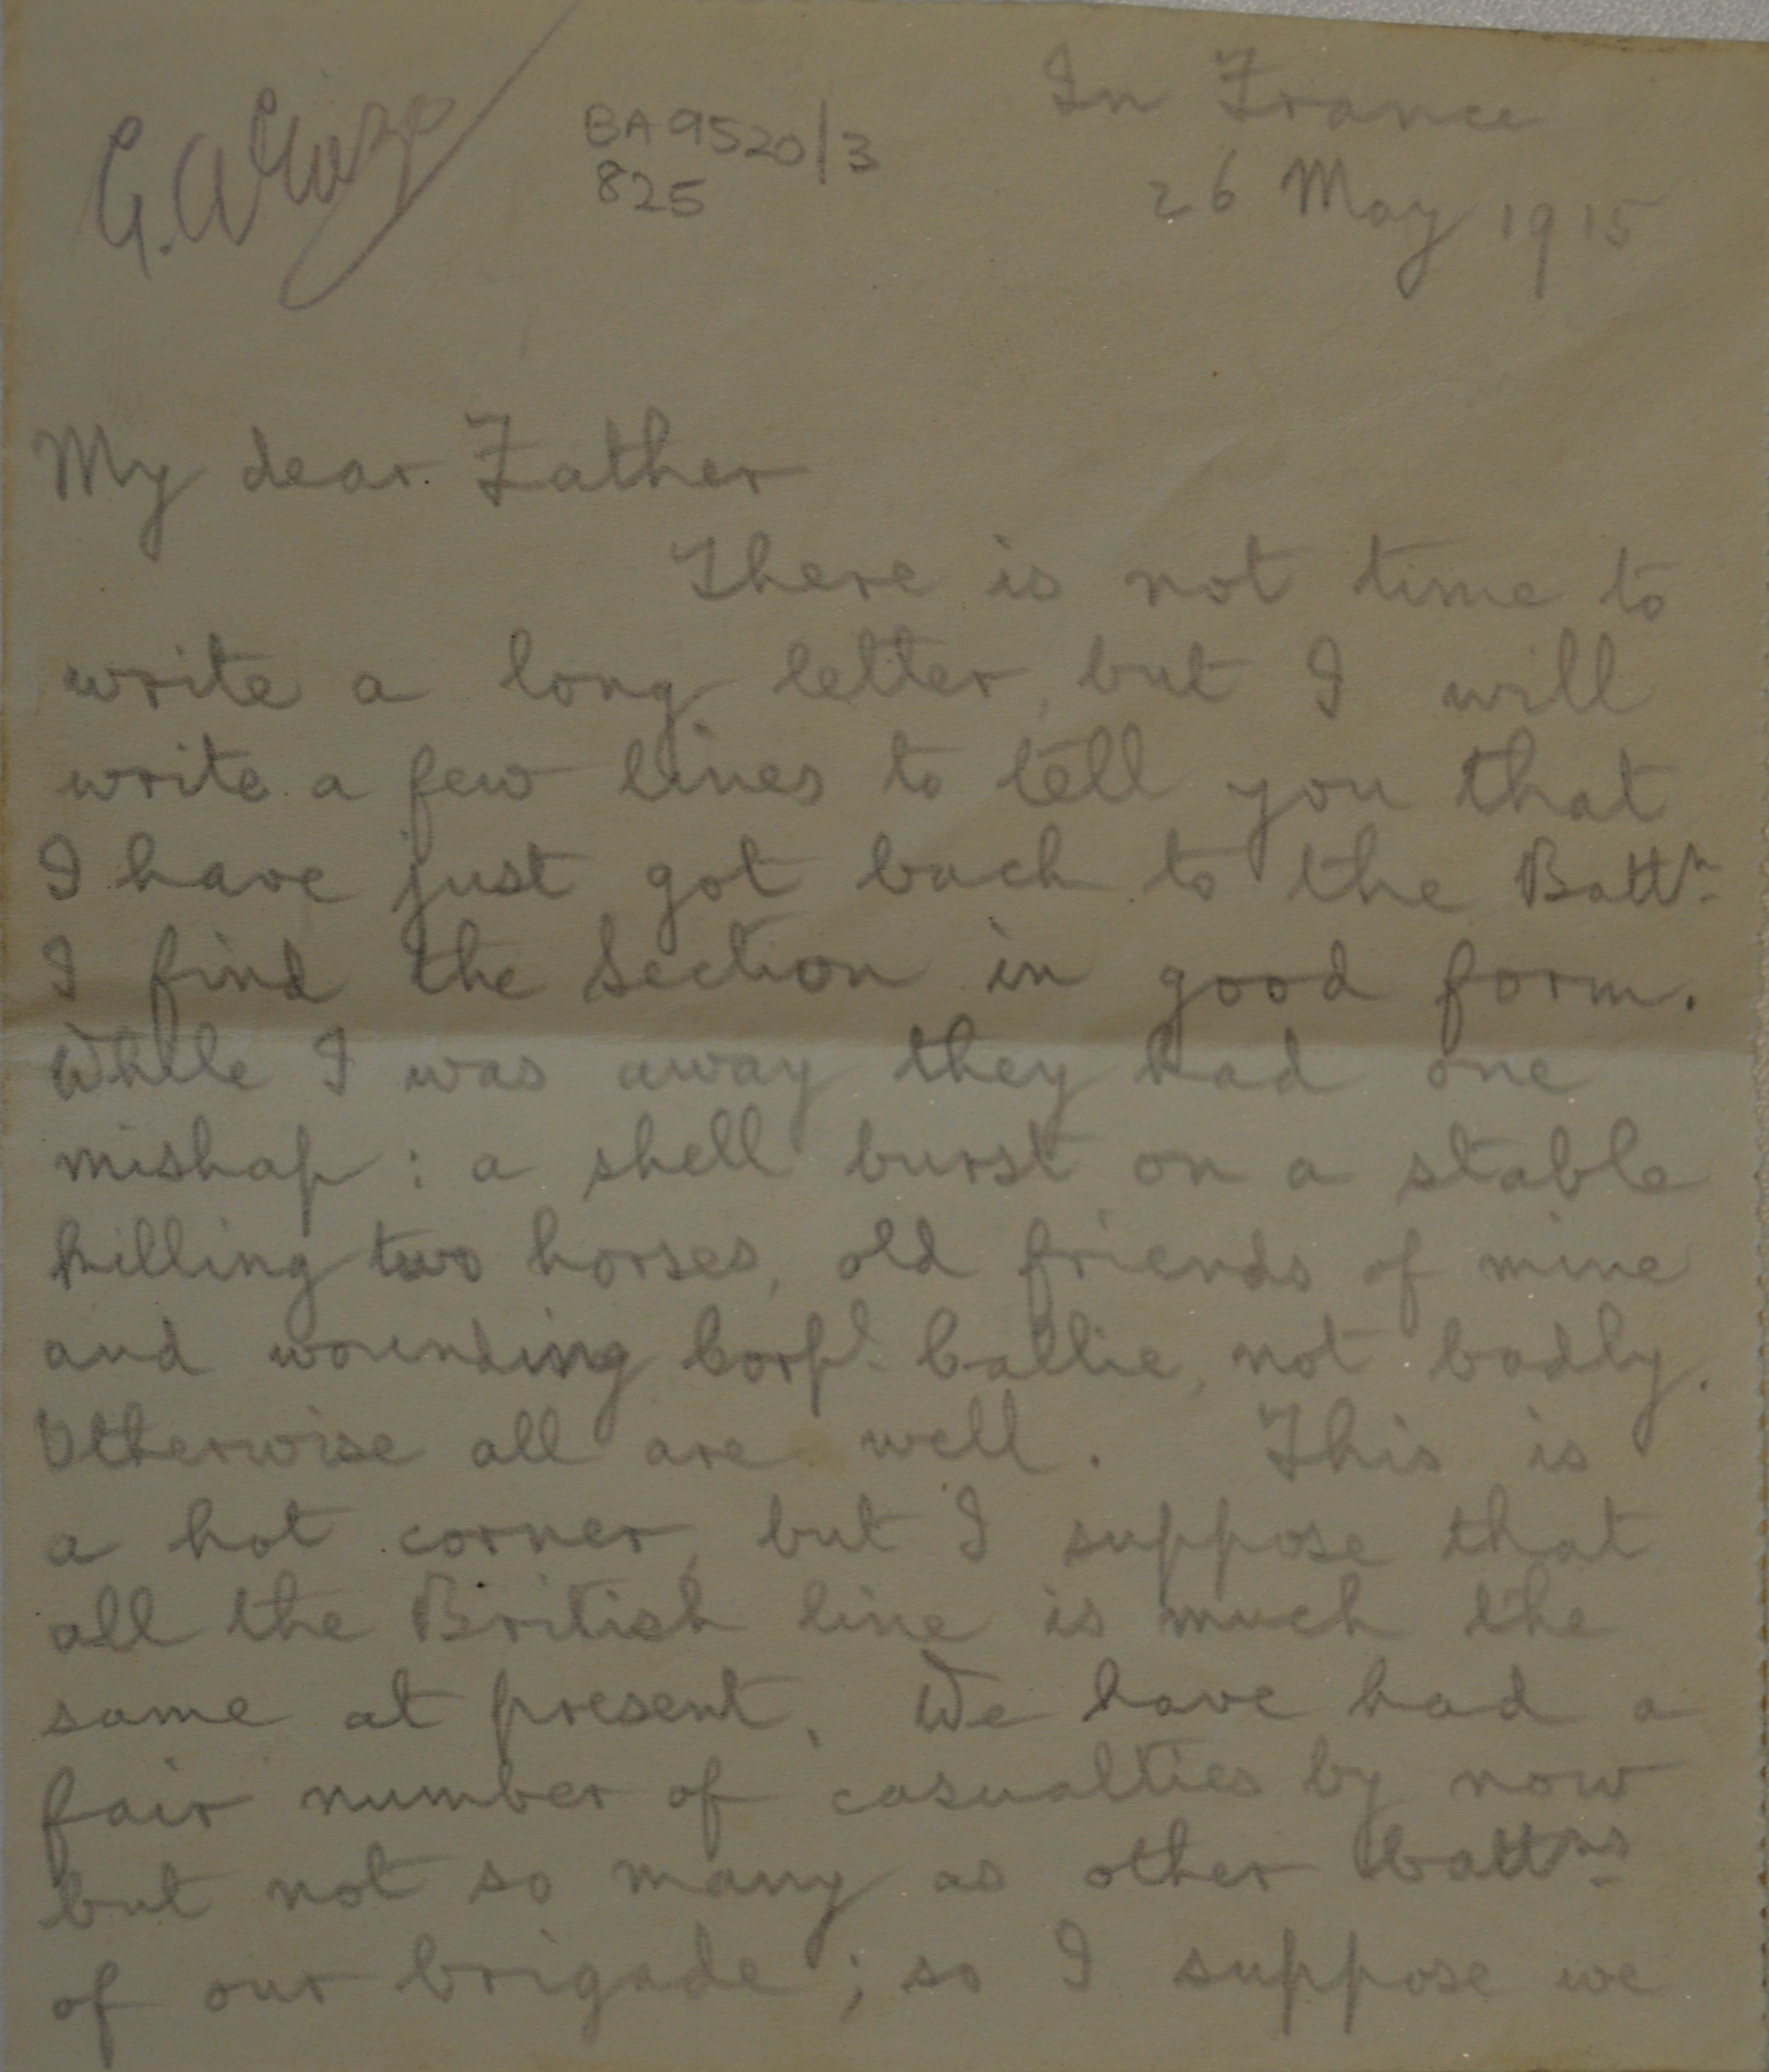 BA 9520/3
825
In France
26 May 1915
My dear Father
There is not time to
write a long letter, but I will
write a few lines to tell you that
I have just got back to the Battn
I find the Section in good form.
While I was away they had one
mishap : a shell burst on a stable
killing two horses, old friends of mine
and wounding Corpl. not badly.
Otherwise all are well. This is
a hot corner, but I suppose that
all the British line is much the
same at present. We have had a
fair number of casualties by now
but not so many as other battns
of our brigade ; so I suppose we